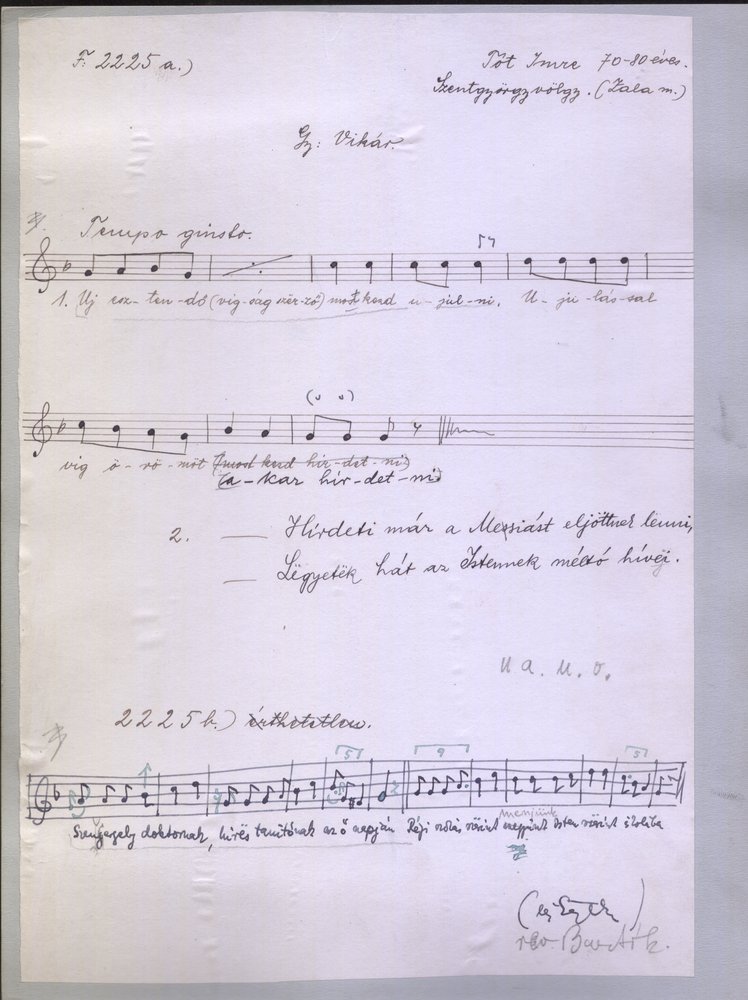 F. 2225 a.)
Tót Imre 70-80 éves.
Szentgyörgyvölgy. (Zala m.)
Gy: Vikár.
Tempo giusto.
1. Uj esz-ten-dő (vig-ság szër-ző) most kezd u-jul-ni. U-ju-lás-sal
vig ö-rö-möt (most kezd hir-det-ni)
(a-kar hir-det-ni)
2. — Hirdeti már a Messiást eljöttnek lenni,
— Lëgyetëk hát az Istennek méltó hívëi.
u a. u. o.
2225 b.) érthetetlen.
5 9 5
menjünk
doktornak, hirës tanitónak az ő napján Régi szërint Isten szërint
rev. Bartók.